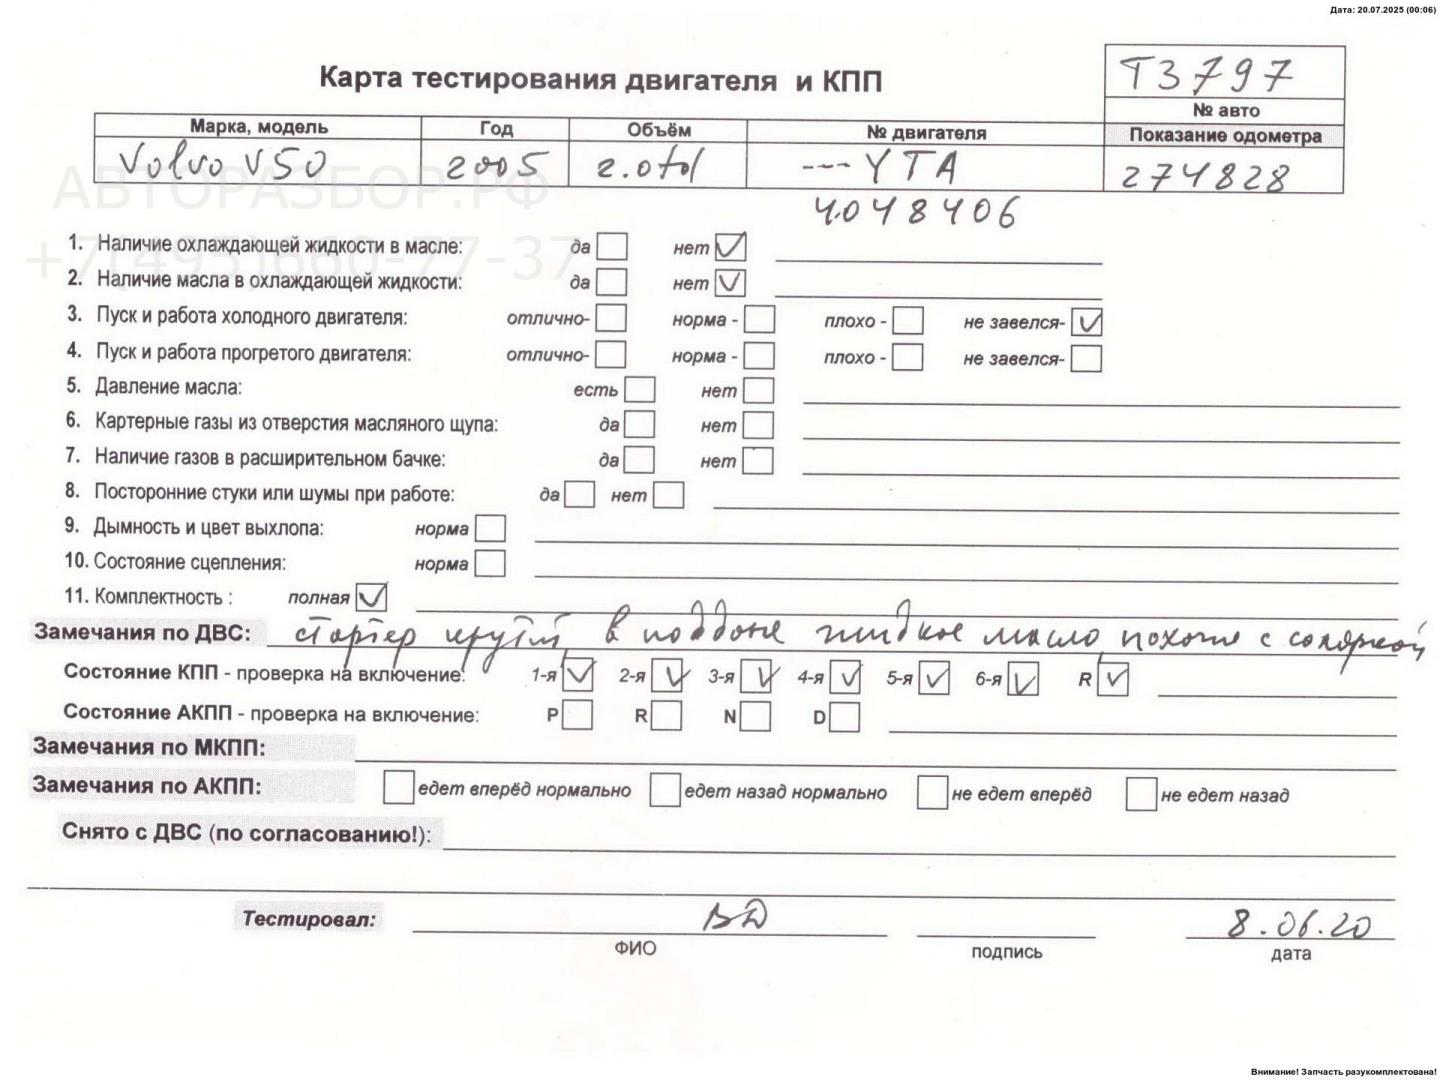 Дата: 20.07.2025 (00:06)
Карта тестирования двигателя и КПП
T3797
№ авто
Марка, модель Год Объём № двигателя Показание одометра
Volvo V50 2005 2.0td ---YTA 274828
4048406
АВТОРАЗБОР.РФ
+7(495)660-77-37
1. Наличие охлаждающей жидкости в масле: да нет ✓
2. Наличие масла в охлаждающей жидкости: да нет ✓
3. Пуск и работа холодного двигателя: отлично- норма - плохо - не завелся- ✓
4. Пуск и работа прогретого двигателя: отлично- норма - плохо - не завелся-
5. Давление масла: есть нет
6. Картерные газы из отверстия масляного щупа: да нет
7. Наличие газов в расширительном бачке: да нет
8. Посторонние стуки или шумы при работе: да нет
9. Дымность и цвет выхлопа: норма
10. Состояние сцепления: норма
11. Комплектность : полная ✓
Замечания по ДВС: стартер крутит, в поддоне жидкое масло, похоже с соляркой
Состояние КПП - проверка на включение: 1-я ✓ 2-я ✓ 3-я ✓ 4-я ✓ 5-я ✓ 6-я ✓ R ✓
Состояние АКПП - проверка на включение: P R N D
Замечания по МКПП:
Замечания по АКПП: едет вперёд нормально едет назад нормально не едет вперёд не едет назад
Снято с ДВС (по согласованию!):
Тестировал: ВД 8.06.20
ФИО подпись дата
Внимание! Запчасть разукомплектована!